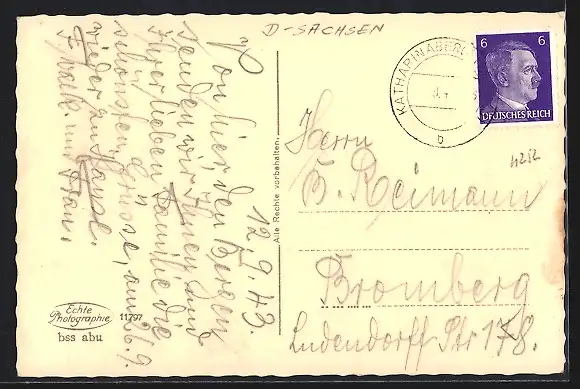 D-SACHSEN
12.9.43.
Von hier den Bergen
senden wir Ihnen und
Ihrer lieben Familie die
schönsten Grüsse, am 26.9.
wieder zu Hause.
und Frau.
Echte
Photographie
11797
bss abu
Alle Rechte vorbehalten.
KATHARINABERG
b
6 6
DEUTSCHES REICH
Herrn
B. Reimann
Bromberg
Ludendorff Str 178.